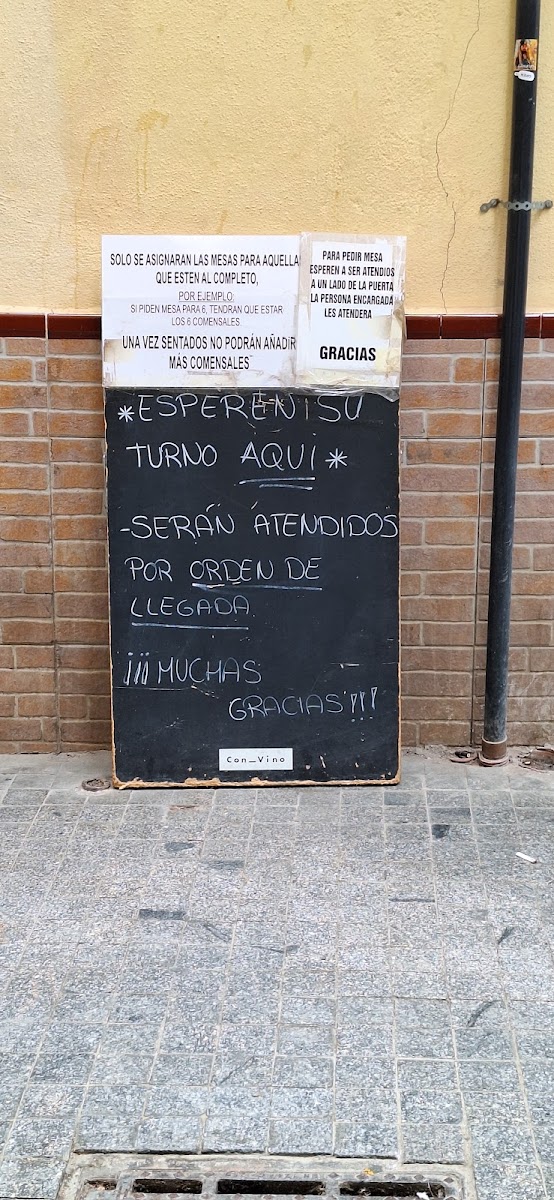 SOLO SE ASIGNARAN LAS MESAS PARA AQUELLA
QUE ESTEN AL COMPLETO,
POR EJEMPLO:
SI PIDEN MESA PARA 6, TENDRAN QUE ESTAR
LOS 6 COMENSALES.
UNA VEZ SENTADOS NO PODRÁN AÑADIR
MÁS COMENSALES
PARA PEDIR MESA
ESPEREN A SER ATENDIOS
A UN LADO DE LA PUERTA
LA PERSONA ENCARGADA
LES ATENDERA
GRACIAS
*ESPEREN SU
TURNO AQUÍ*
-SERÁN ATENDIDOS
POR ORDEN DE
LLEGADA
¡¡¡MUCHAS
GRACIAS!!!
Con_Vino